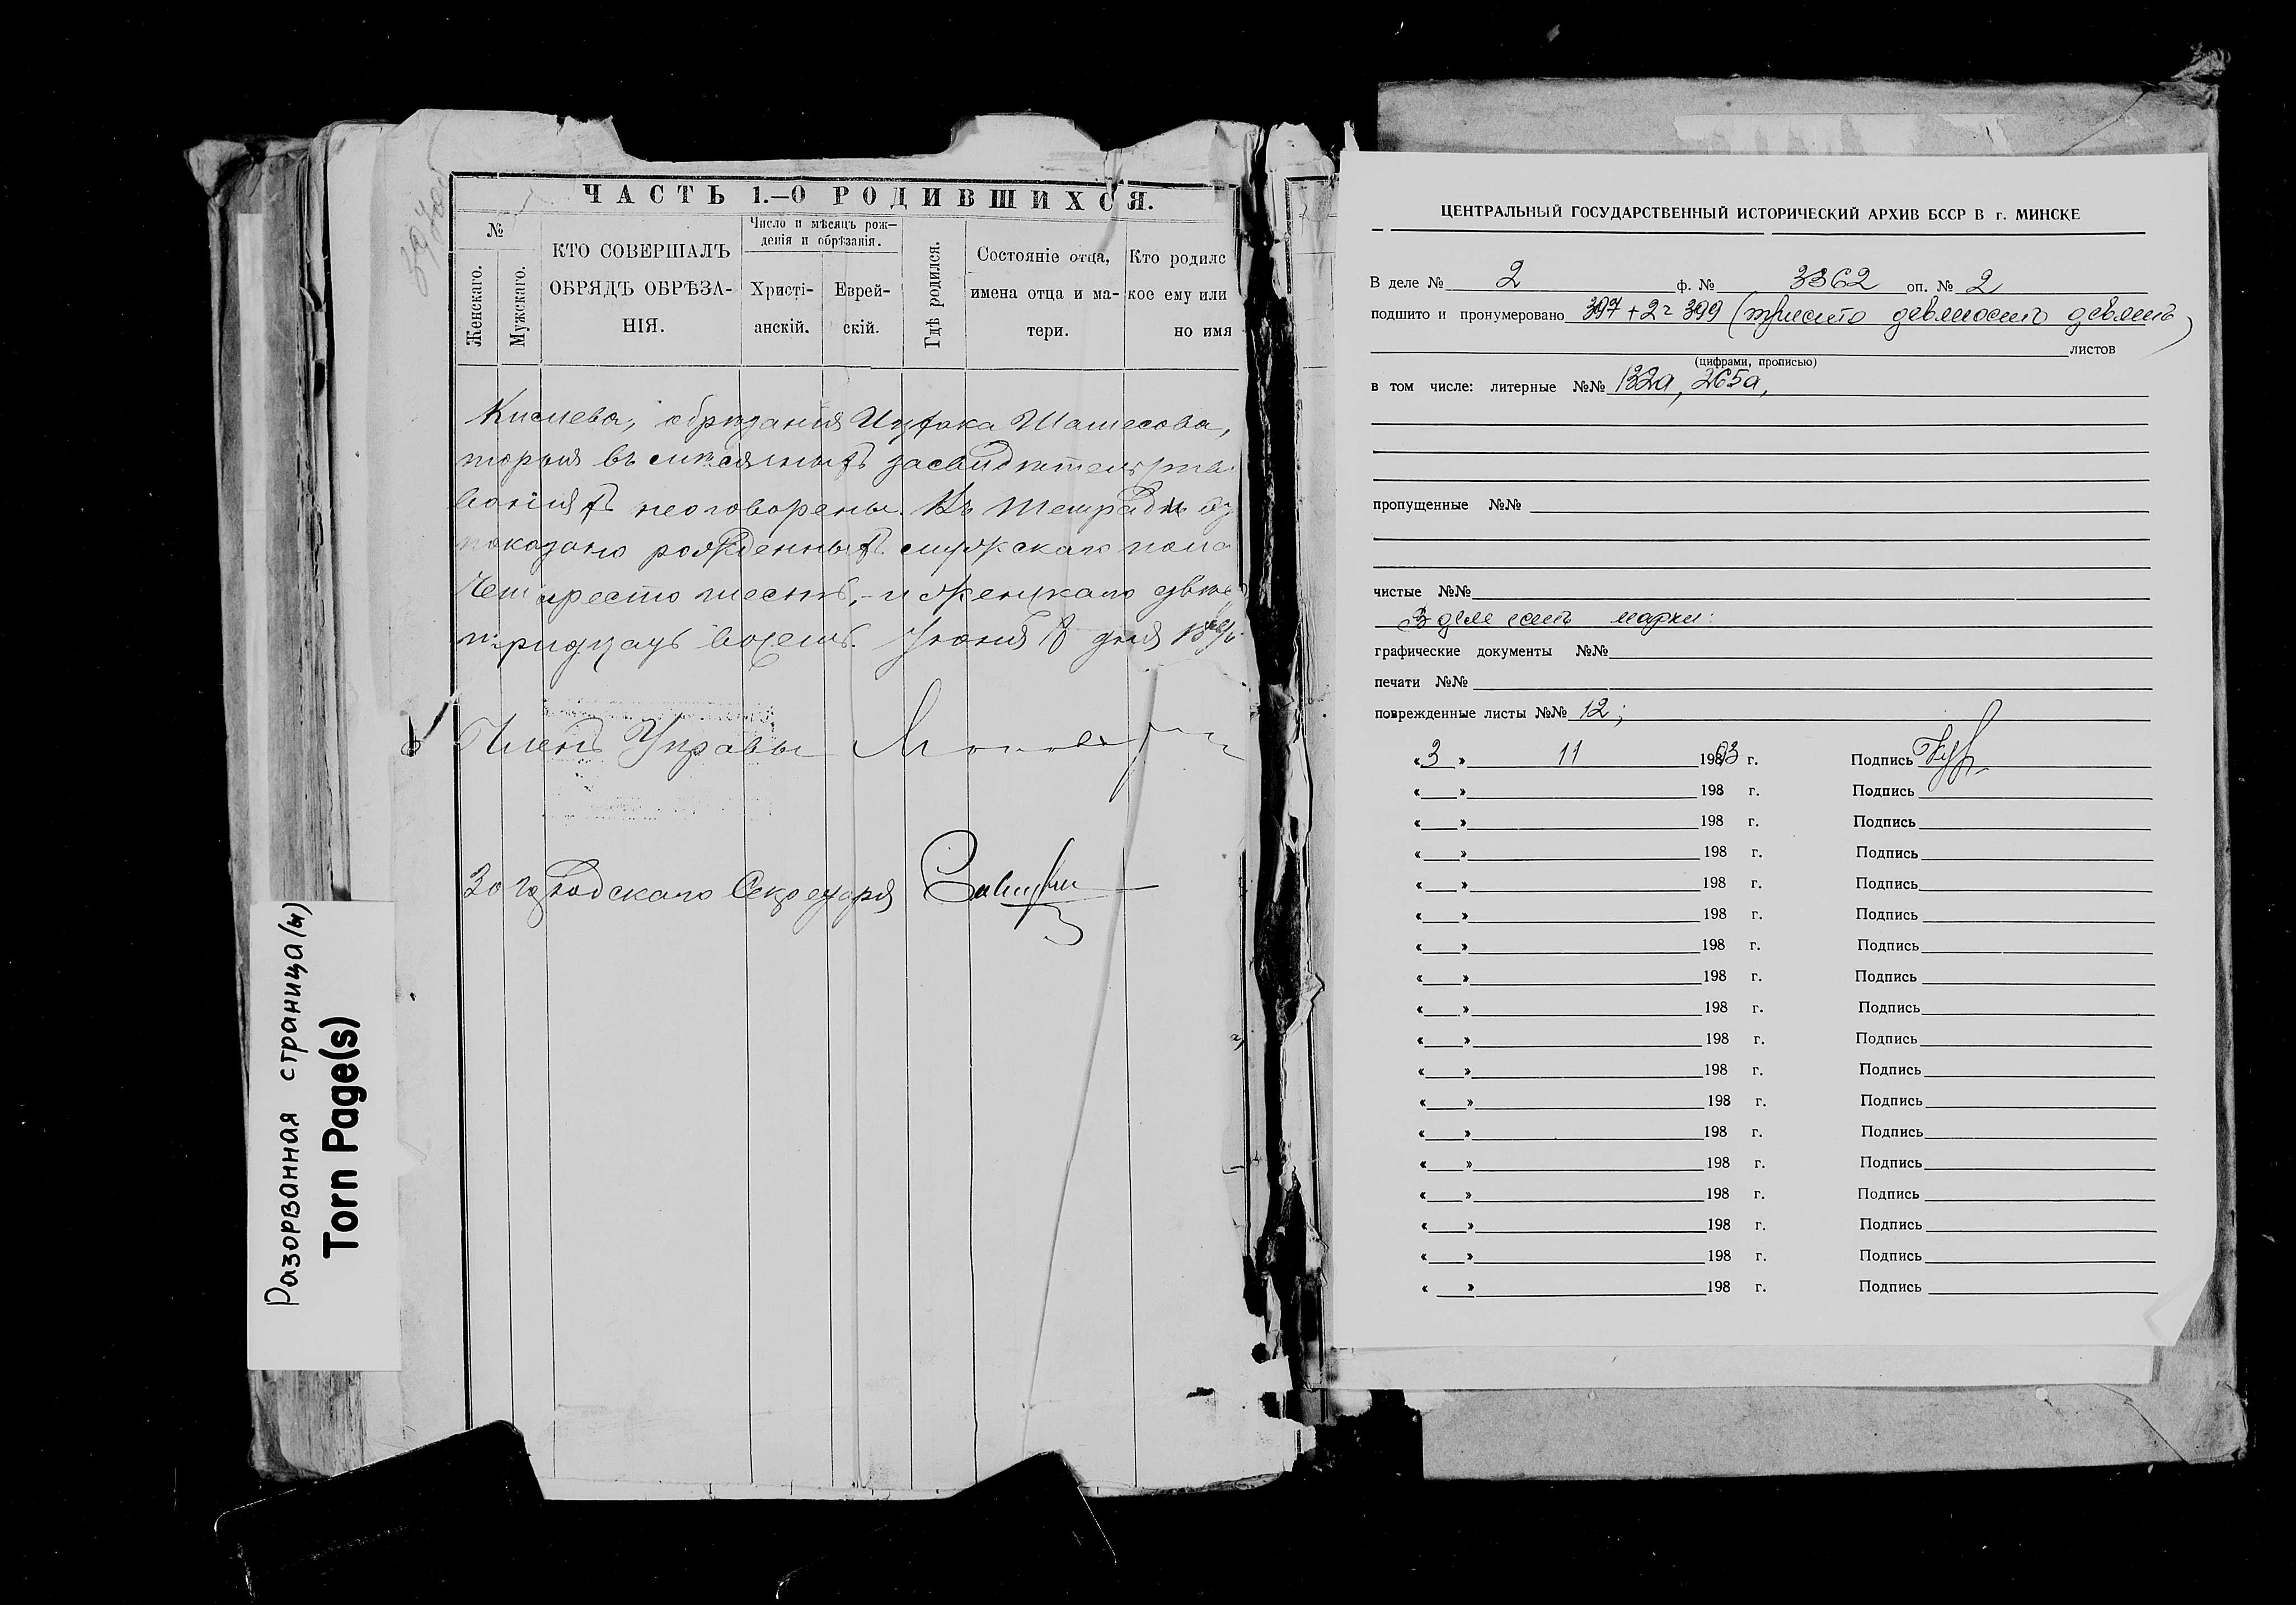 ЧАСТЬ 1.—О РОДИВШИХСЯ.
№
Женскаго.
Мужскаго.
КТО СОВЕРШАЛЪ
ОБРЯДЪ ОБРѢЗА-
НІЯ.
Число и мѣсяцъ рож-
денія и обрѣзанія.
Христі-
анскій.
Еврей-
скій.
Гдѣ родился.
Состояніе отца,
имена отца и ма-
тери.
Кто родилс
кое ему или
но имя
обрѣзанія Ицхака
торыя въ засвидѣтельство
ваніяхъ неоговорены. Въ тетради
показано рожденныхъ мужскаго пола
Четыреста шесть, и женскаго двѣс
тридцать восемь. Іюня дня
Членъ Управы
За Городскаго Секретаря
Разорванная страница(ы)
Torn Page(s)
ЦЕНТРАЛЬНЫЙ ГОСУДАРСТВЕННЫЙ ИСТОРИЧЕСКИЙ АРХИВ БССР В г. МИНСКЕ
В деле № 2 ф. № 3362 оп. № 2
подшито и пронумеровано 397+2=399 (триста девяносто девять)
листов
(цифрами, прописью)
в том числе: литерные №№ 132а, 265а,
пропущенные №№
чистые №№
В деле есть марки:
графические документы №№
печати №№
поврежденные листы №№ 12;
«3» 11 1983 г. Подпись
«   » 198 г. Подпись
«   » 198 г. Подпись
«   » 198 г. Подпись
«   » 198 г. Подпись
«   » 198 г. Подпись
«   » 198 г. Подпись
«   » 198 г. Подпись
«   » 198 г. Подпись
«   » 198 г. Подпись
«   » 198 г. Подпись
«   » 198 г. Подпись
«   » 198 г. Подпись
«   » 198 г. Подпись
«   » 198 г. Подпись
«   » 198 г. Подпись
«   » 198 г. Подпись
«   » 198 г. Подпись